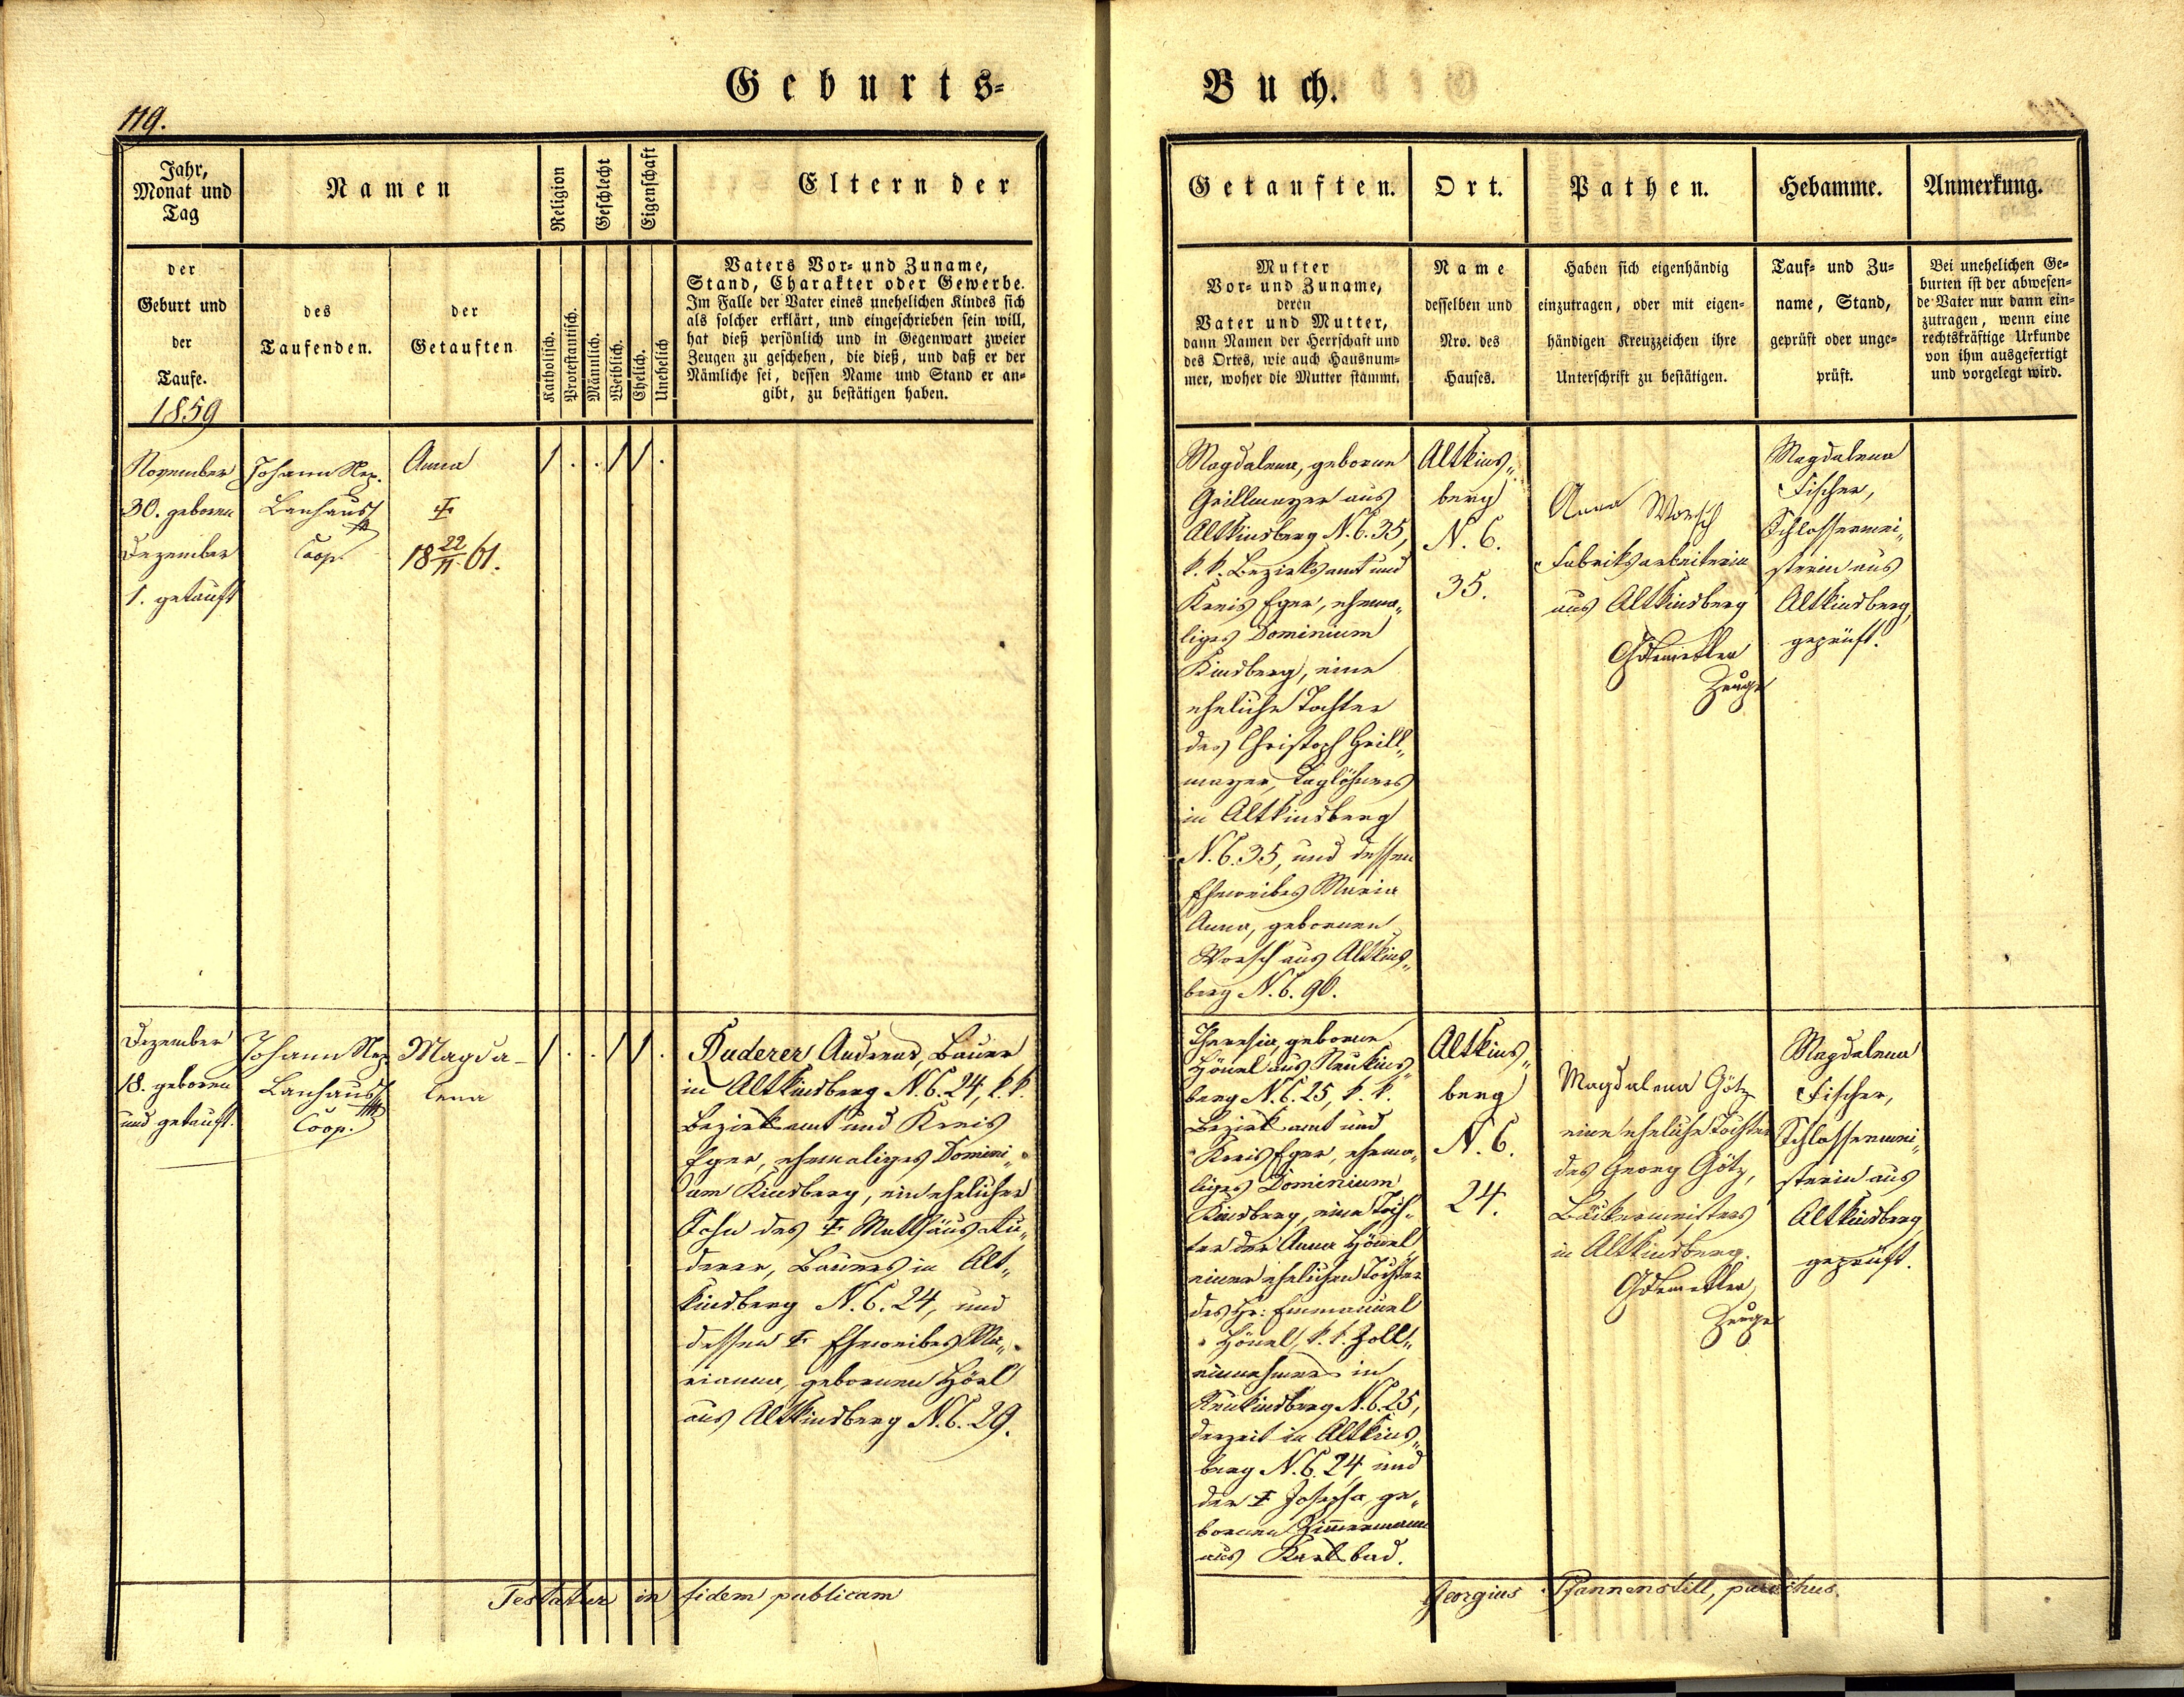 Geburts=
Buch.
119.
Jahr,
Monat und
Tag
Namen
Religion
Geschlecht
Eigenschaft
Eltern der
der
Geburt und
der
Taufe.
1859
des
Taufenden.
der
Getauften
Katholisch.
Protestantisch.
Männlich.
Weiblich.
Ehelich.
Unehelich
Vaters Vor= und Zuname,
Stand, Charakter oder Gewerbe.
Im Falle der Vater eines unehelichen Kindes sich
als solcher erklärt, und eingeschrieben sein will,
hat dieß persönlich und in Gegenwart zweier
Zeugen zu geschehen, die dieß, und daß er der
Nämliche sei, dessen Name und Stand er an=
gibt, zu bestätigen haben.
Getauften.
Ort.
Pathen.
Hebamme.
Anmerkung.
Mutter
Vor= und Zuname,
deren
Vater und Mutter,
dann Namen der Herrschaft und
des Ortes, wie auch Hausnum=
mer, woher die Mutter stammt.
Name
desselben und
Nro. des
Hauses.
Haben sich eigenhändig
einzutragen, oder mit eigen=
händigen Kreuzzeichen ihre
Unterschrift zu bestätigen.
Tauf= und Zu=
name, Stand,
geprüft oder unge=
prüft.
Bei unehelichen Ge=
burten ist der abwesen=
de Vater nur dann ein=
zutragen, wenn eine
rechtskräftige Urkunde
von ihm ausgefertigt
und vorgelegt wird.
November
30. geboren
Dezember
1. getauft
Johann Nep.
Lanhaus
Coop.
Anna
‡
18 22/11 61.
1 . . 1 1 .
Magdalena, geborne
Grillmayer aus
Altkinsberg N. C. 35,
k. k. Bezirksamt und
Kreis Eger, ehema„
liges Dominium
Kinsberg, eine
eheliche Tochter
des Christoph Grill„
mayer, Taglöhners
in Altkinsberg
N. C. 35, und dessen
Eheweibes Maria
Anna, gebornen
Worsch aus Altkins„
berg N. C. 90.
Altkins„
berg
N. C.
35.
Anna Worsch
Fabriksarbeiterin
aus Altkinsberg
Zeuge
Magdalena
Fischer,
Schlossermei„
sterin aus
Altkinsberg,
geprüft.
Dezember
18. geboren
und getauft.
Johann Nep.
Lanhaus
Coop.
Magda-
lena
1 . . 1 1 .
Ruderer Andreas, Bauer
in Altkinsberg N. C. 24, k. k.
Bezirksamt und Kreis
Eger, ehemaliges Domini„
um Kinsberg, ein ehelicher
Sohn des ‡ Mathäus Ru„
derer, Bauers in Alt„
kinsberg N. C. 24, und
dessen ‡ Eheweibes Ma„
rianna, gebornen Hösl
aus Altkinsberg N. C. 29.
Theresia, geborne
Hönel aus Neukins„
berg N. C. 25, k. k.
Bezirksamt und
Kreis Eger, ehema„
liges Dominium
Kinsberg, eine Toch„
ter der Anna Hönel
einer ehelichen Tochter
des Hr: Emmanuel
Hönel, k. k. Zoll„
einnehmers in
Neukinsberg N. C. 25,
derzeit in Altkins„
berg N. C. 24 und
der ‡ Josepha, ge„
bornen Zimmermann
aus Karlsbad.
Altkins„
berg
N. C.
24.
Magdalena Götz
eine eheliche Tochter
des Georg Götz,
Bäckermeisters
in Altkinsberg.
Zeuge
Magdalena
Fischer,
Schlossermei„
sterin aus
Altkinsberg
geprüft.
Testatur in fidem publicam
Georgius Pfannenstill, parochus.